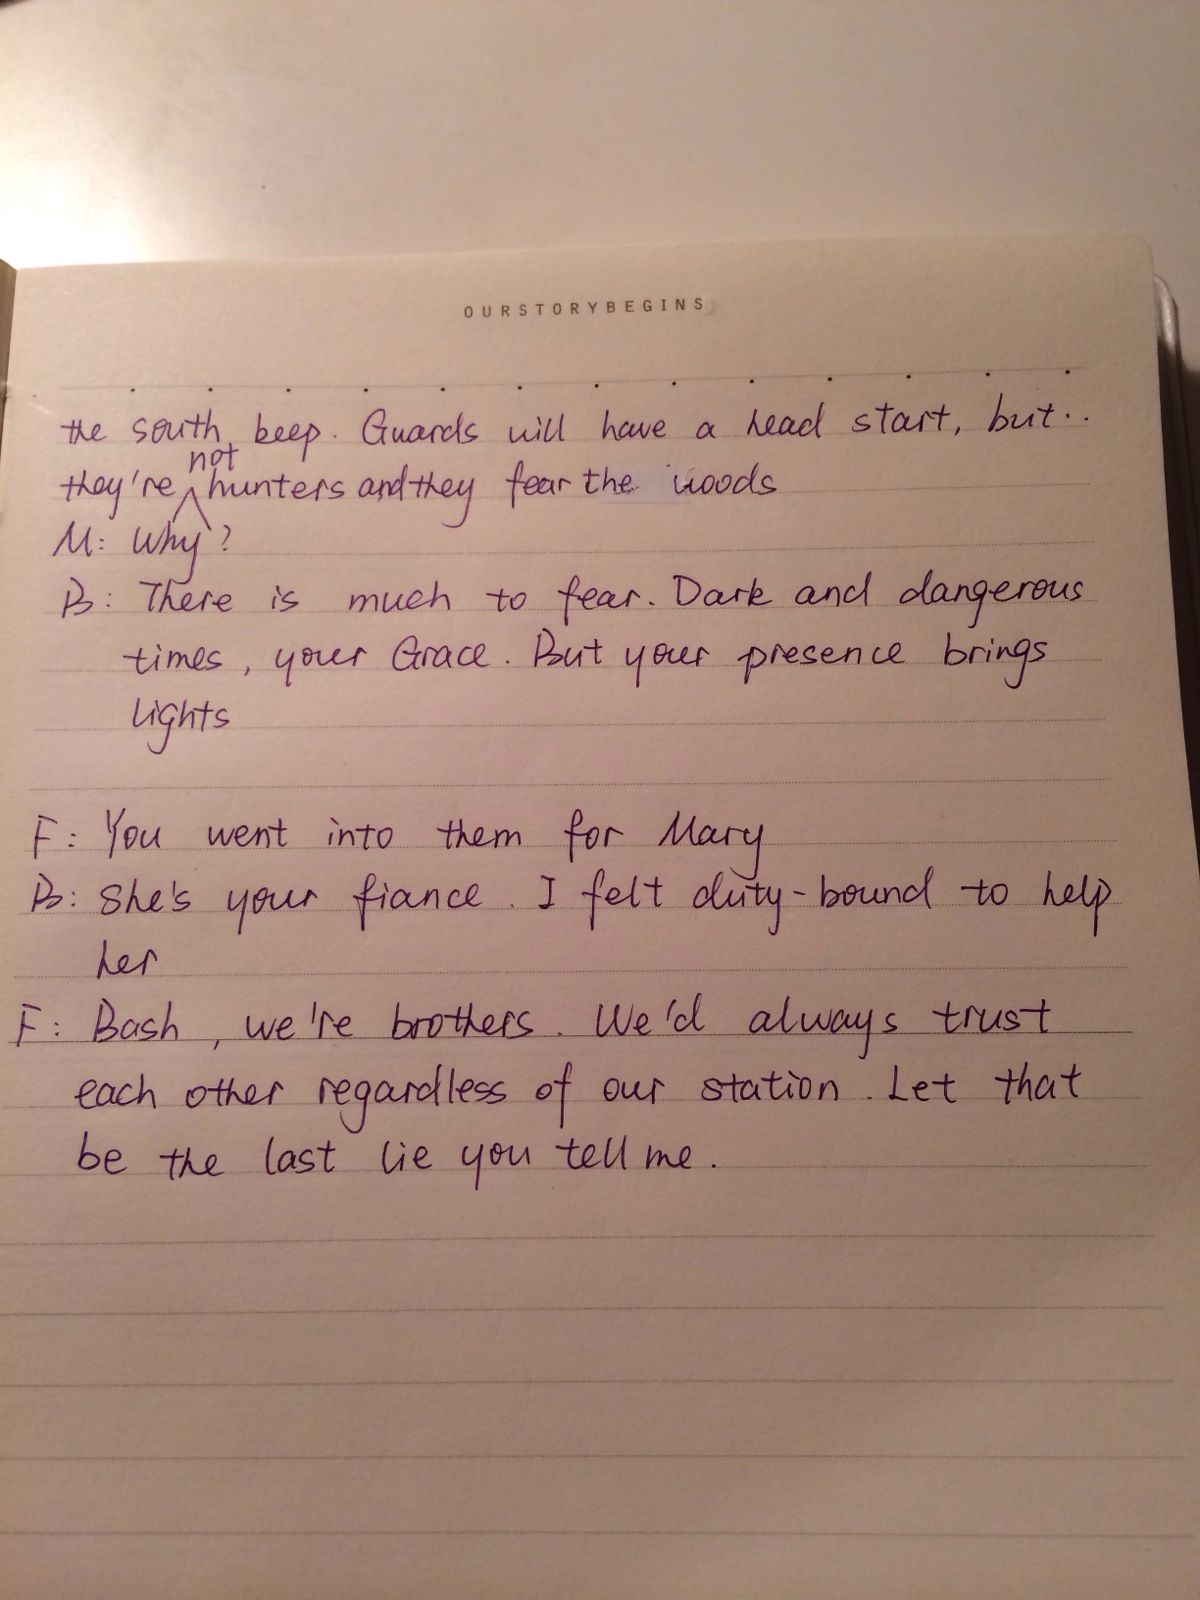 OURSTORYBEGINS
the south beep. Guards will have a head start, but..
they're not hunters and they fear the woods
M: Why?
B: There is much to fear. Dark and dangerous
times, your Grace. But your presence brings
lights
F: You went into them for Mary
B: She's your fiance. I felt duty-bound to help
her
F: Bash, we're brothers. We'd always trust
each other regardless of our station. Let that
be the last lie you tell me.